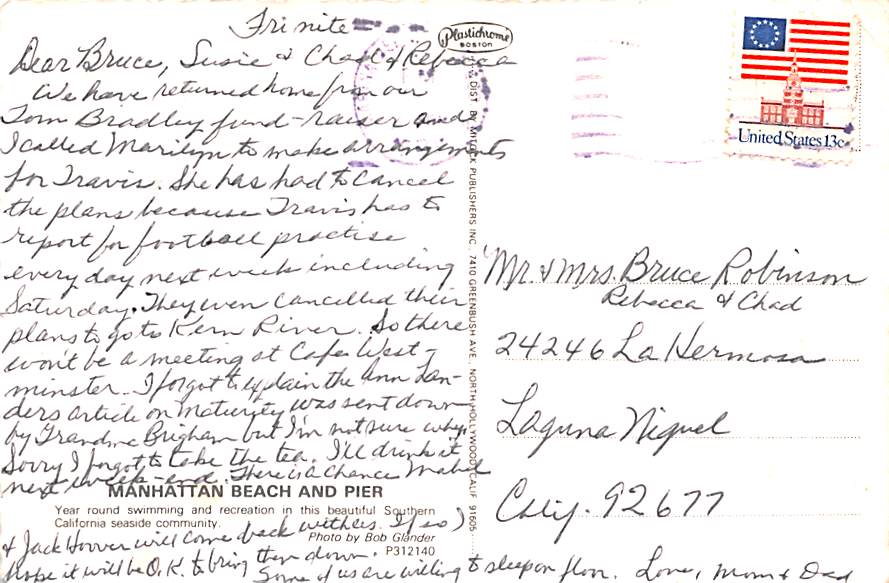 Fri nite
Dear Bruce, Susie & Chad & Rebecca
We have returned home from our
Tom Bradley fund-raiser and
I called Marilyn to make arrangements
for Travis. She has had to cancel
the plans because Travis has to
report for football practise
every day next week including
Saturday. They even cancelled their
plans to go to Kern River. So there
won't be a meeting at Cafe West-
minster. I forgot to explain the Ann Lan-
ders article on Maturity was sent down
by Grandma Brigham but I'm not sure why.
Sorry I forgot to take the tea. I'll drink it
next week-end. There is a chance Mabel
& Jack Hoover will come back with us. If so)
hope it will be O.K. to bring them down.
Some of us are willing to sleep on floor. Love, Mom & Dad
MANHATTAN BEACH AND PIER
Year round swimming and recreation in this beautiful Southern
California seaside community.
Photo by Bob Glander
P312140
Plastichrome
BOSTON
DIST. BY MITOCK PUBLISHERS INC. 7410 GREENBUSH AVE., NORTH HOLLYWOOD, CALIF. 91605
United States 13c
Mr. & Mrs. Bruce Robinson
Rebecca & Chad
24246 La Hermosa
Laguna Niguel
Calif. 92677